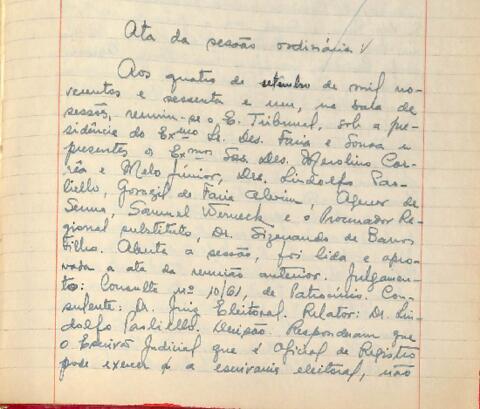 Ata da sessão ordinária
Aos quatro de setembro de mil no-
vecentos e sessenta e um, na sala de
sessões, reuniu-se o E. Tribunal, sob a pre-
sidência do Exmo Sr. Des. Faria e Sousa e
presentes os Exmos Srs. Des. Merolino Cor-
rêa e Melo Júnior, Drs. Lindolfo Pao-
liello, Gorazil de Faria Alvim, Agenor de
Senna, Samuel Werneck e o Procurador Re-
gional substituto, Dr. Sizenando de Barros
Filho. Aberta a sessão, foi lida e apro-
vada a ata da reunião anterior. Julgamen-
tos: Consulta nº 10/61, de Patrocínio. Con-
sulente: Dr. Juiz Eleitoral. Relator: Dr. Lin-
dolfo Paoliello. Decisão. Responderam que
o Escrivão Judicial que é Oficial de Registro
pode exercer a escrivania eleitoral, não